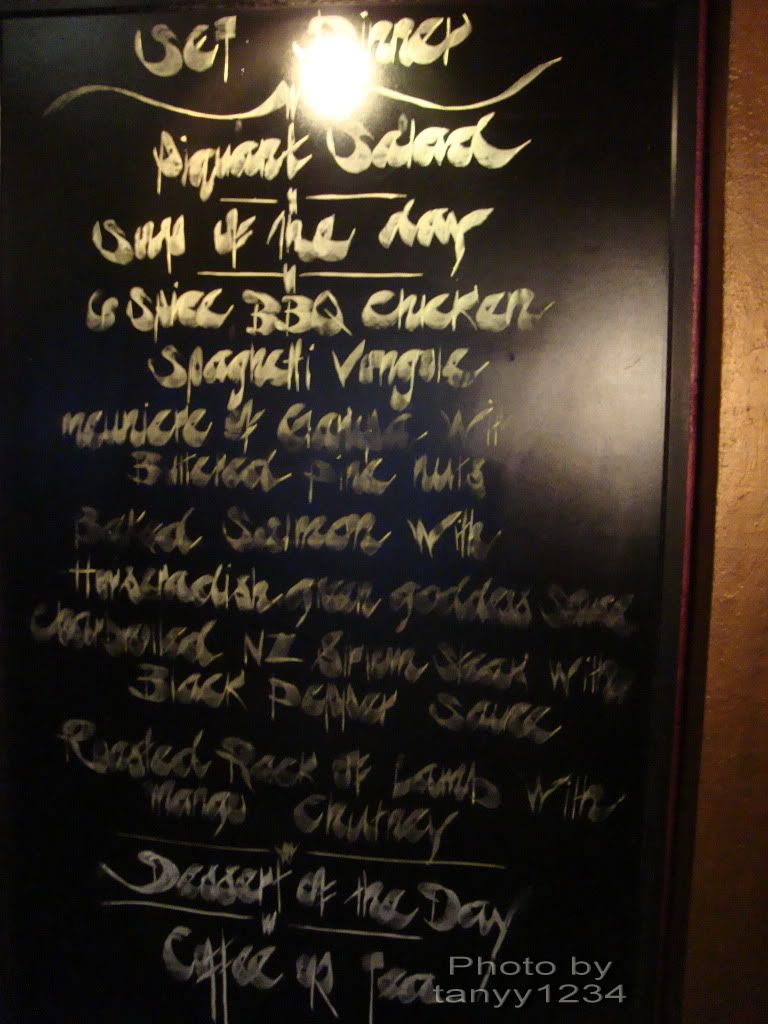 Set Dinner
Piquant Salad
Soup of the day
6 Spice BBQ Chicken
Spaghetti Vongole
meuniere of with
Buttered pine nuts
Baked Salmon with
Horseradish green goddess sauce
Charbroiled NZ Sirloin Steak with
Black pepper sauce
Roasted Rack of Lamb with
Mango Chutney
Dessert of the Day
Coffee or Tea
Photo by
tanyy1234